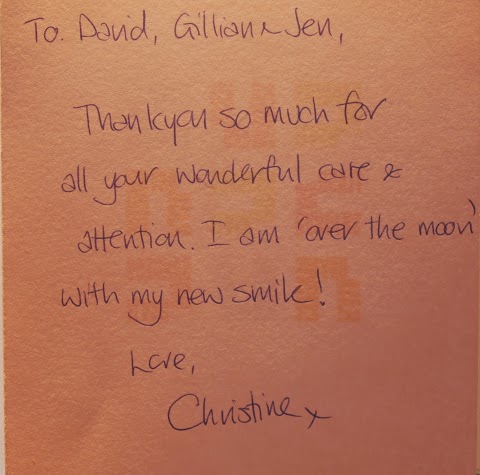 To. David, Gillian & Jen,
Thankyou so much for
all your wonderful care &
attention. I am 'over the moon'
with my new smile!
Love,
Christine x